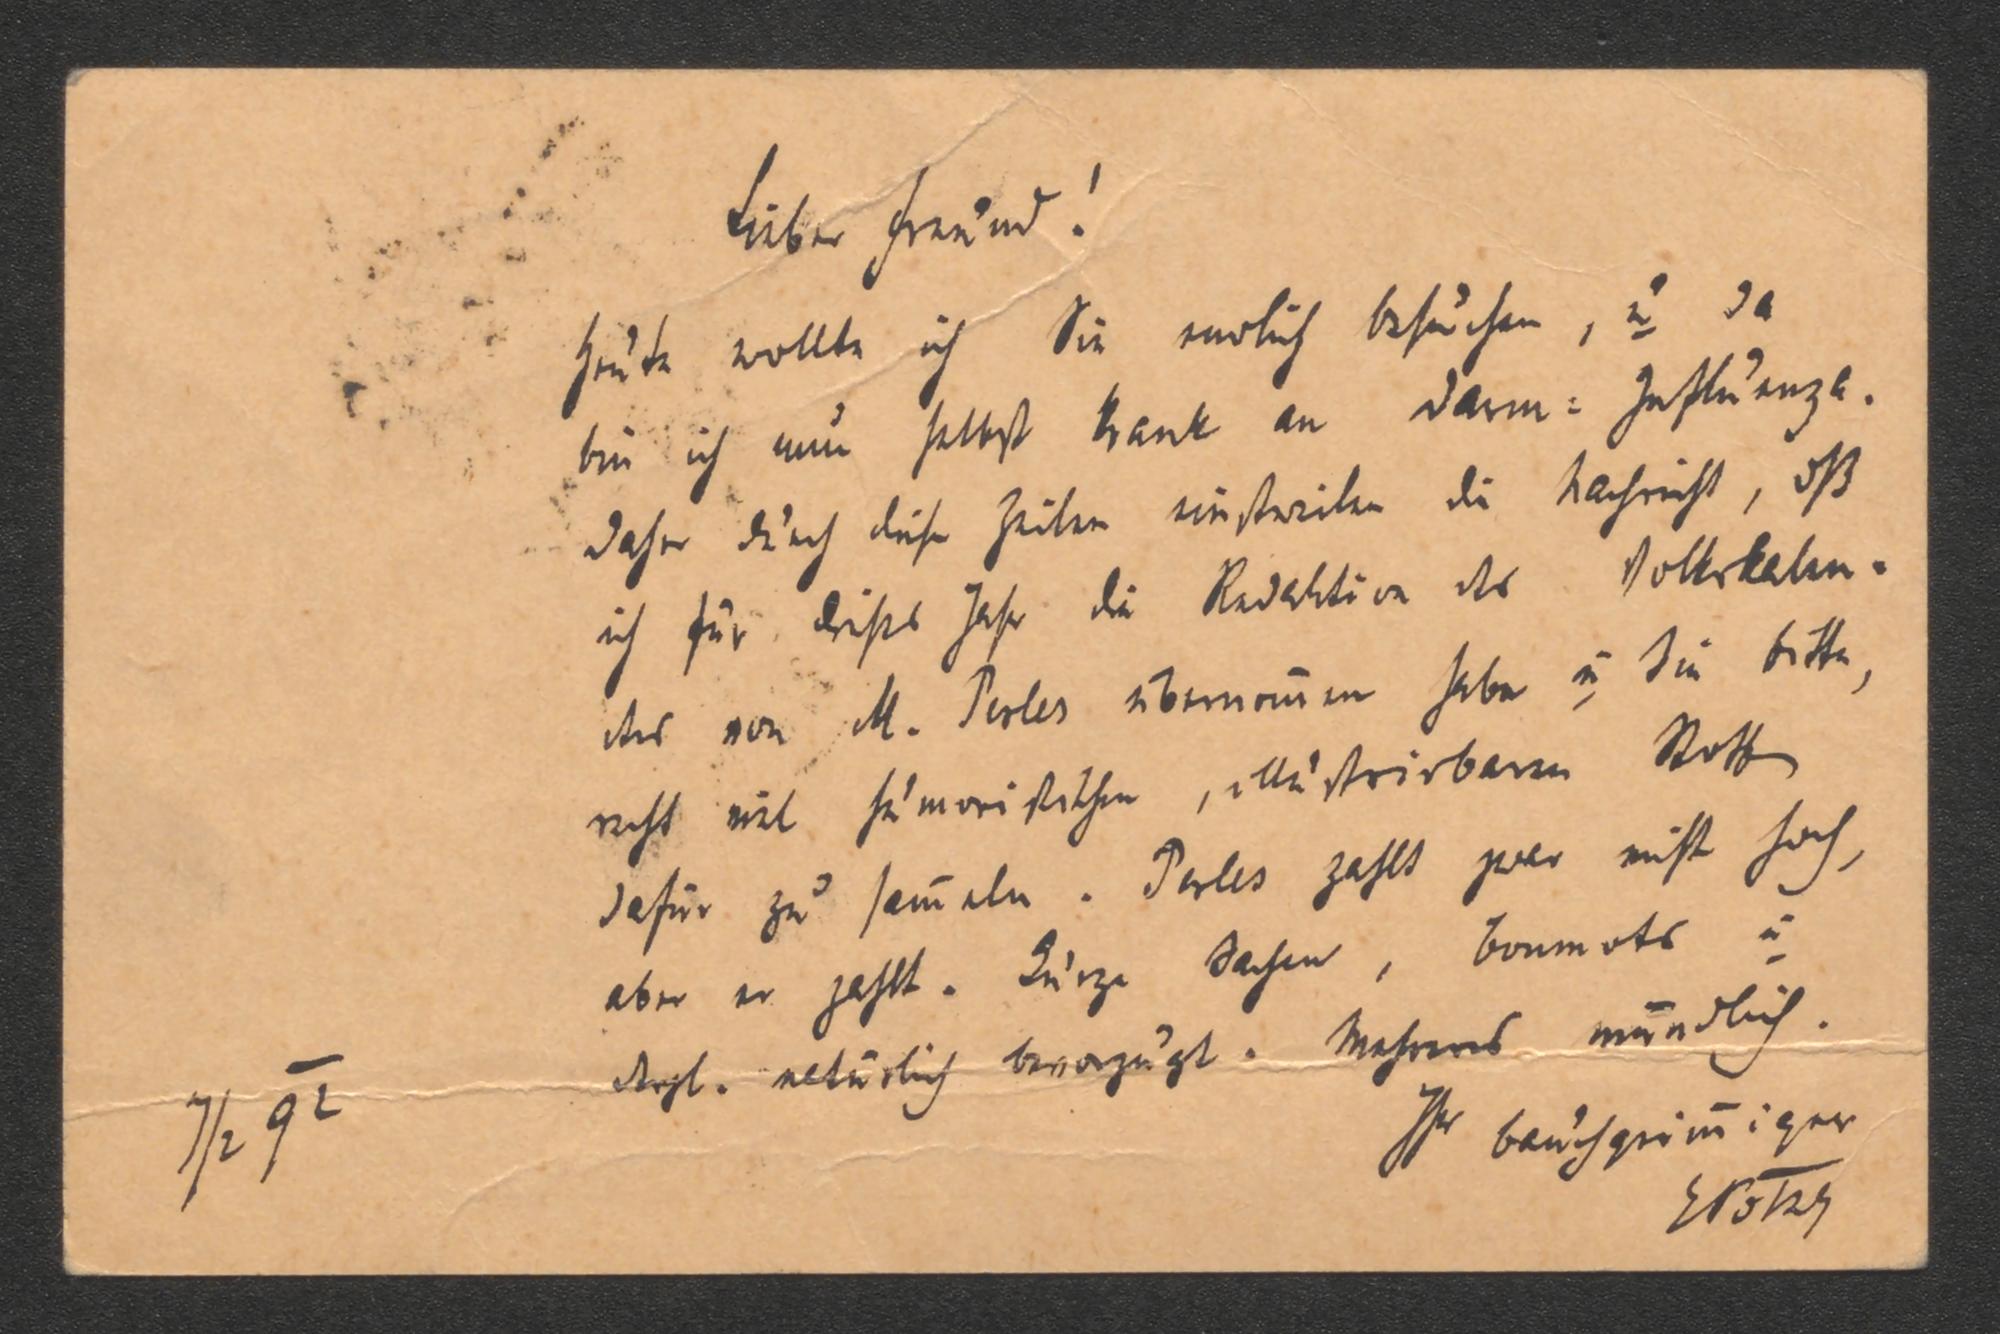 Lieber Freund!
Heute wollte ich Sie endlich besuchen, u da
bin ich nun selbst krank an Darm=Influenza.
Daher durch diese Zeilen einstweilen die Nachricht, dß
ich für dieses Jahr die Redaktion des Volkskalen-
ders von M. Perles übernom̄en habe u Sie bitte,
recht viel humoristischen, illustrirbaren Stoff
dafür zu sam̄eln. Perles zahlt zwar nicht hoch,
aber er zahlt. Kurze Sachen, Bonmots u
dergl. natürlich bevorzugt. Mehreres mündlich.
Ihr bauchgrim̄iger
7/2 92